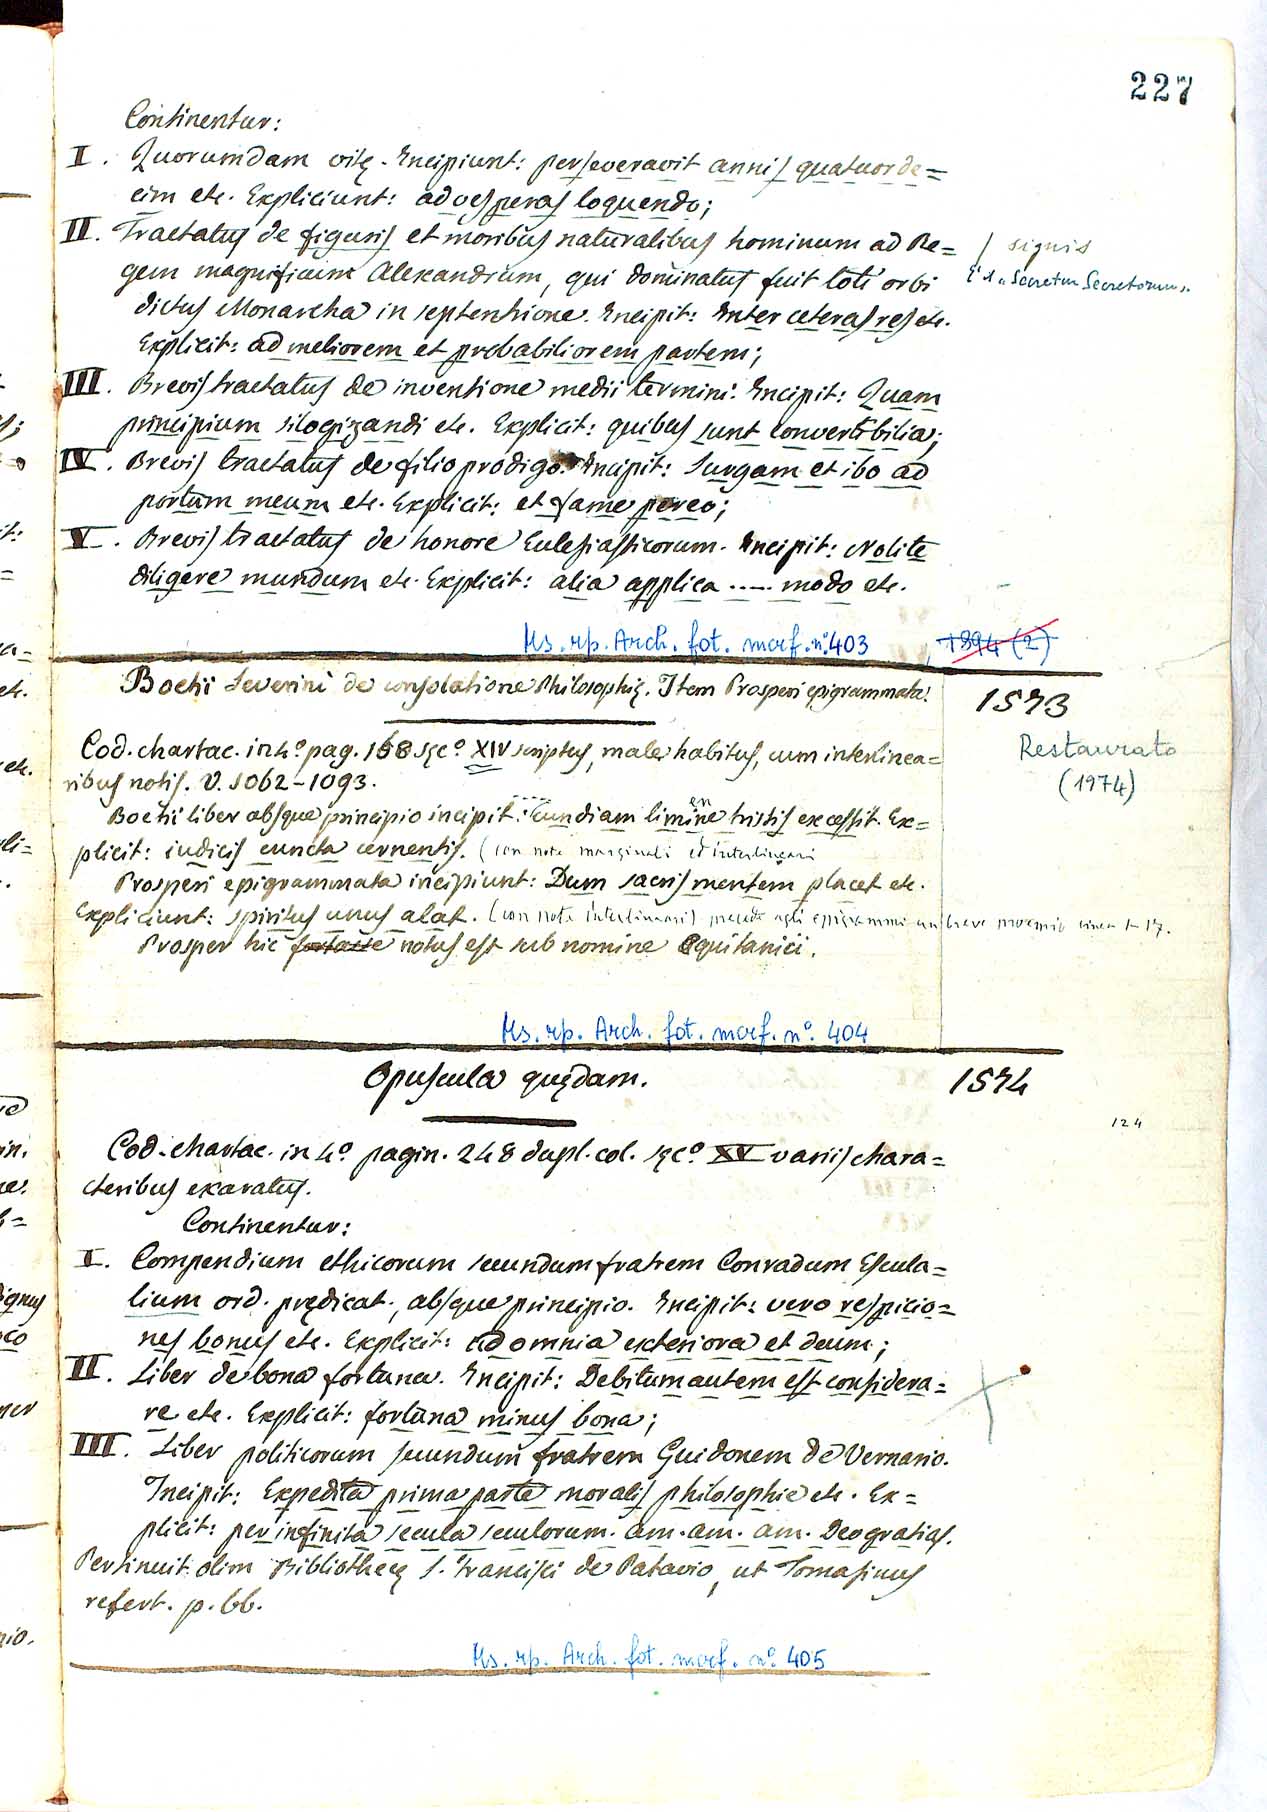 227
Continentur:
I. Quorumdam vitę. Incipiunt: perseveravit annis quatuorde=
cim etc. Expliciunt: ad vesperas loquendo;
II. Tractatus de figuris et moribus naturalibus hominum ad Re= / signis
gem magnificum Alexandrum, qui dominatus fuit toti orbi È il "Secretum Secretorum".
dictus Monarcha in septentrione. Incipit: Inter ceteras res etc.
Explicit: ad meliorem et probabiliorem partem;
III. Brevis tractatus de inventione medii termini. Incipit: Quam
principium silogizandi etc. Explicit: quibus sunt convertibilia;
IV. Brevis tractatus de filio prodigo. Incipit: Surgam et ibo ad
portum meum etc. Explicit: et fame pereo;
V. Brevis tractatus de honore Eclesiasticorum. Incipit: Nolite
diligere mundum etc. Explicit: alia applica ..... modo etc.
Ms. rp. Arch. fot. marf. n.º 403 1894 (2)
Boetii Severini de consolatione Philosophię. Item Prosperi epigrammata. 1573
Cod. chartac. in 4º pag. 158 sęcº XIV scriptus, male habitus, cum interlinea= Restaurato
ribus notis. V. 1062-1093. (1974)
Boetii liber absque principio incipit: Eundiam limine tristis excessit. Ex=
en
plicit: iudicis cuncta cernentis. (con note marginali ed interlineari
Prosperi epigrammata incipiunt: Dum sacris mentem placet etc.
Expliciunt: spiritus unus alat. (con note interlineari) precede agli epigrammi un breve proemio
Prosper hic fortasse notus est sub nomine Equitanici.
Ms. rp. Arch. fot. marf. nº. 404
Opuscula quędam. 1574
124
Cod. chartac. in 4º. pagin. 248 dupl. col. sęcº XV variis chara=
cteribus exaratus.
Continentur:
I. Compendium ethicorum secundum fratrem Conradum Escula=
lium ord. prędicat., absque principio. Incipit: vero respicio=
nes bonus etc. Explicit: ad omnia exteriora et deum;
II. Liber de bona fortuna. Incipit: Debitum autem est considera=
re etc. Explicit: fortuna minus bona;
III. Liber politicorum secundum fratrem Guidonem de Vernario.
Incipit: Expedita prima parte moralis philosophie etc. Ex=
plicit: per infinita secula seculorum. am. am. am. Deo gratias.
Pertinuit olim Bibliothecę S. Francisci de Patavio, ut Tomasinus
refert. p. 66.
Ms. rp. Arch. fot. marf. nº 405